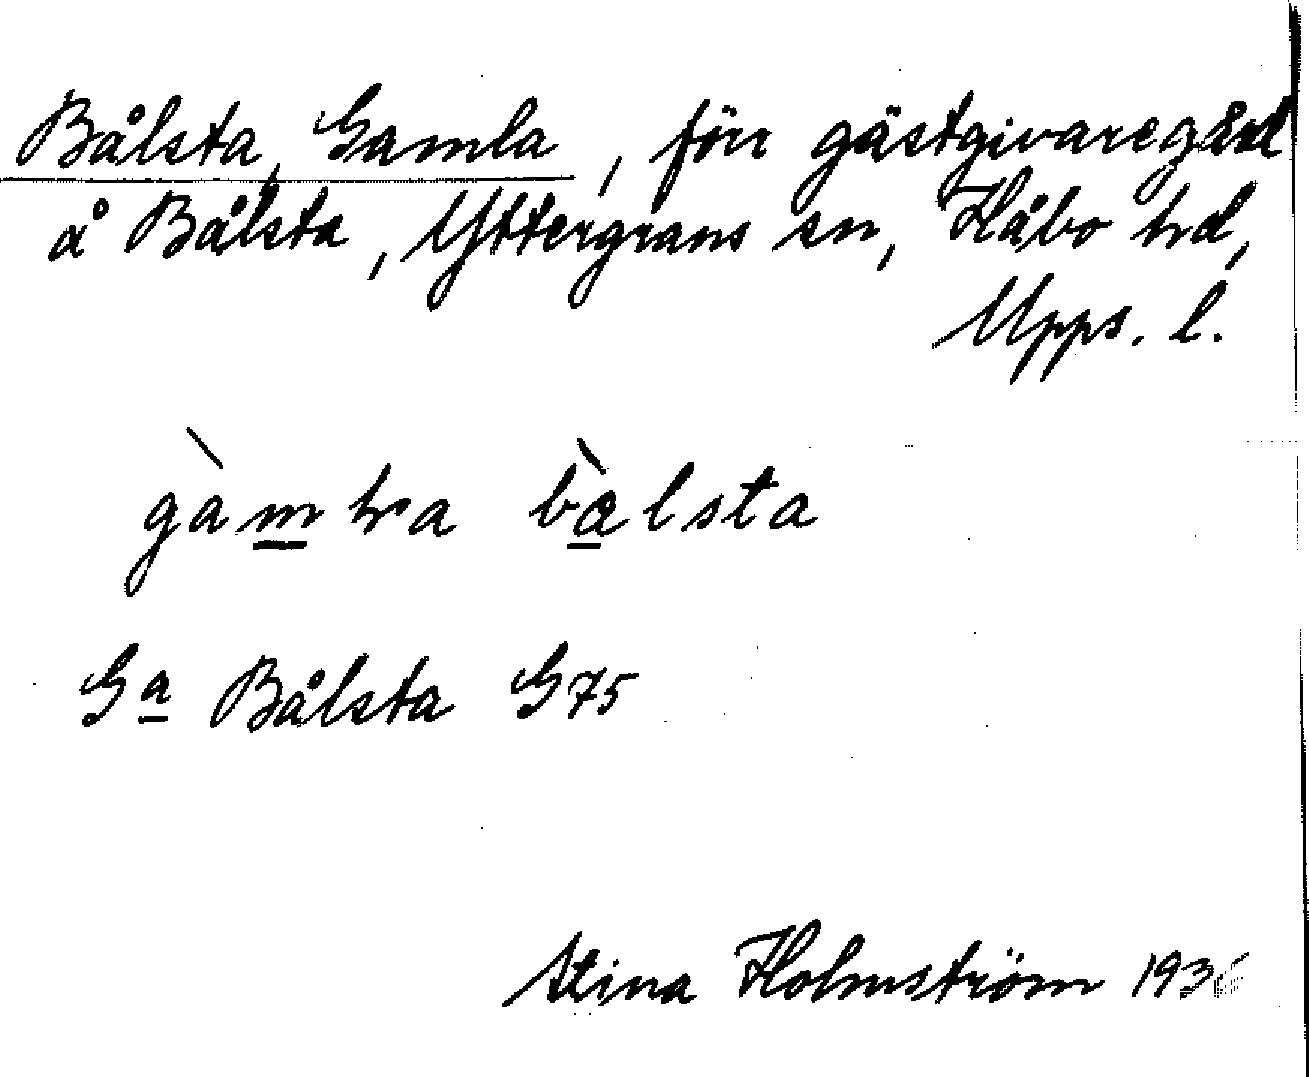 Bålsta, Gamla, förr gästgivaregård
å Bålsta, Yttergrans sn, Håbo hd,
Upps. l.
gàmɫa bàlsta
Ga Bålsta G75
Stina Holmström 1936